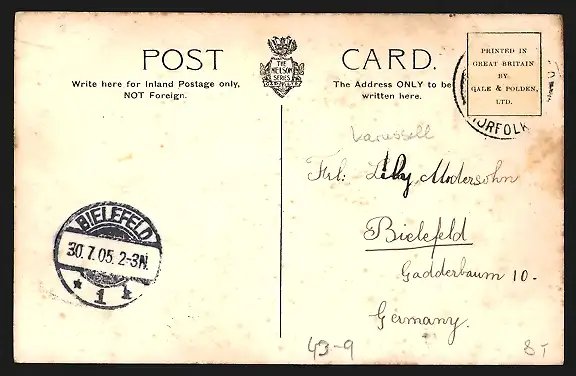 POST CARD.
THE
NELSON
SERIES
Write here for Inland Postage only,
NOT Foreign.
The Address ONLY to be
written here.
PRINTED IN
GREAT BRITAIN
BY
GALE & POLDEN,
LTD.
NORFOLK
Karussell
Frl: Lily Modersohn
Bielefeld
Gadderbaum 10.
Germany.
BIELEFELD
30.7.05. 2-3N.
* 1 k
43-9
8T